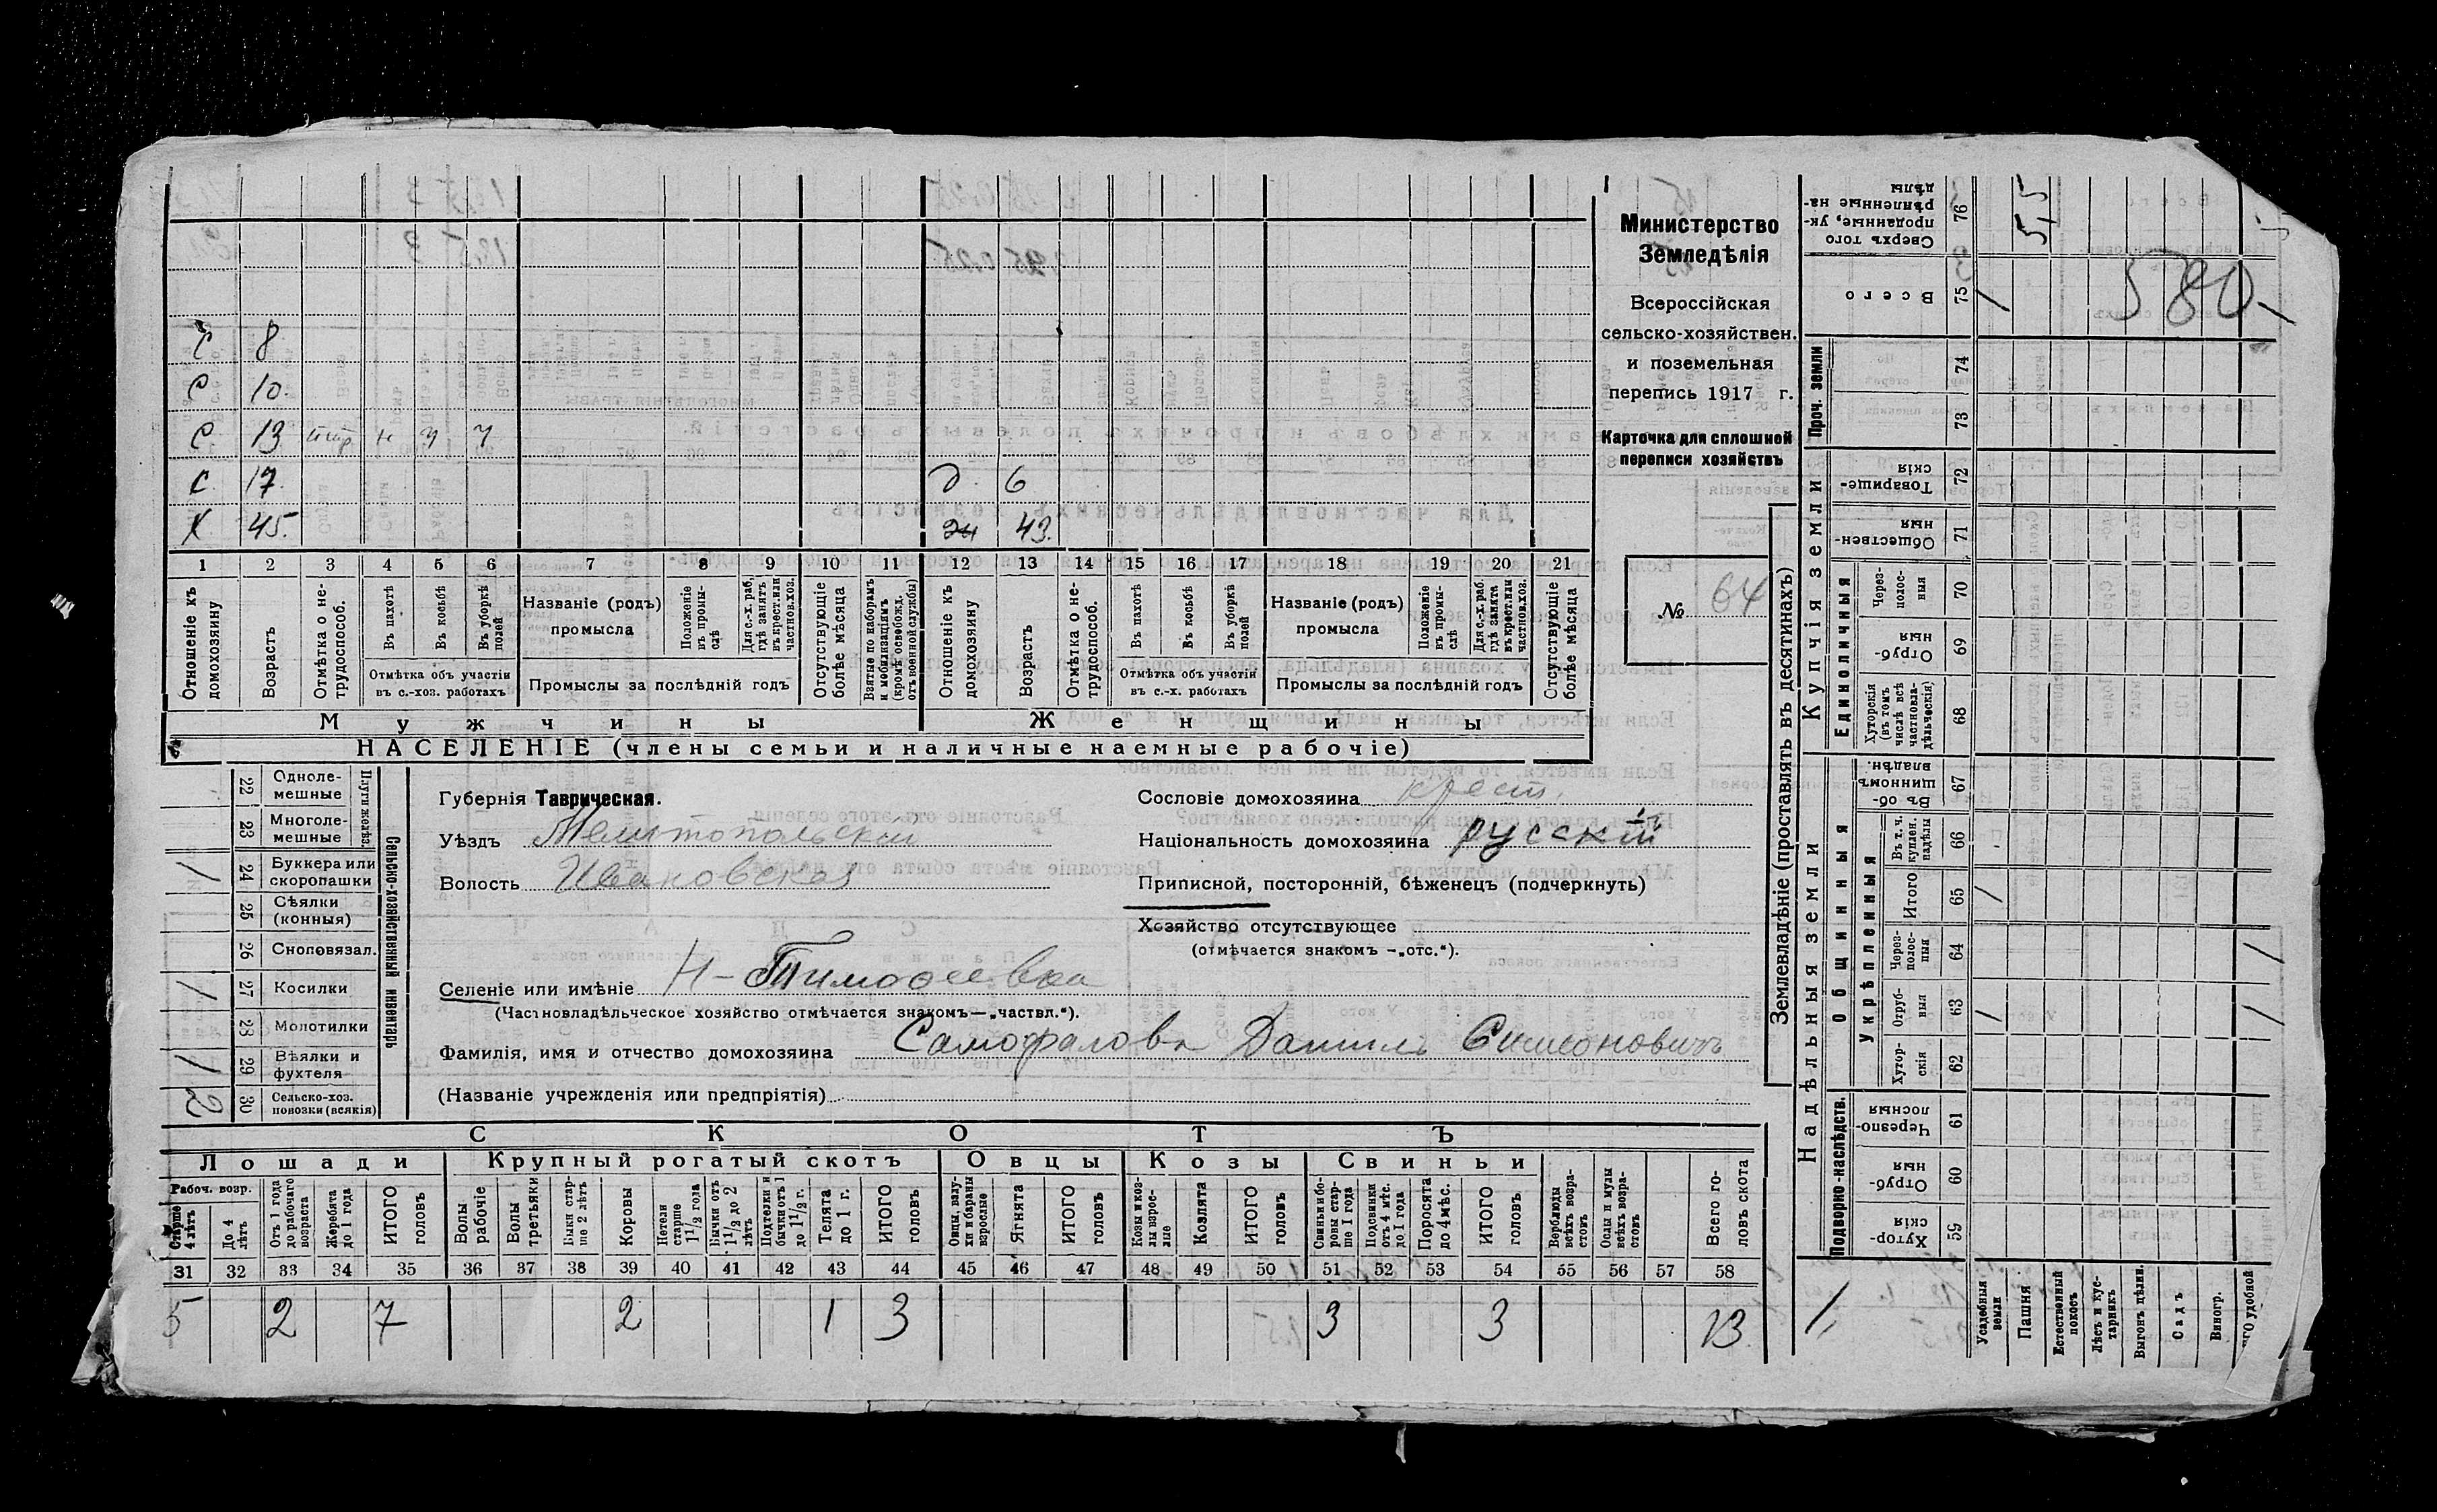 С 8
С 10.
С 13 н ч ч
С 17. д. 6
Х 45. жн 43.
1 2 3 4 5 6 7 8 9 10 11 12 13 14 15 16 17 18 19 20 21
Отношеніе къ домохозяину
Возрастъ
Отмѣтка о не-
трудоспособ.
Въ пахотѣ
Въ косьбѣ
Въ уборкѣ полей
Отмѣтка объ участіи
въ с.-хоз. работахъ
Названіе (родъ)
промысла
Положеніе
въ промы-
слѣ
Для с.-х. раб,
гдѣ занятъ
въ крест.или
частнов.хоз.
Промыслы за послѣдній годъ
Отсутствующіе
болѣе мѣсяца
Взятые по наборамъ
и мобилизаціямъ
(кромѣ освобожд.
отъ военной службы)
Отношеніе къ
домохозяину
Возрастъ
Отмѣтка о не-
трудоспособ.
Въ пахотѣ
Въ косьбѣ
Въ уборкѣ
полей
Отмѣтка объ участіи
въ с.-х. работахъ
Названіе (родъ)
промысла
Положеніе
въ промы-
слѣ
Для с.-х. раб.
гдѣ занята
въ крест.или
частнов.хоз.
Промыслы за послѣдній годъ
Отсутствующіе
болѣе мѣсяца
Мужчины
Женщины
НАСЕЛЕНІЕ (члены семьи и наличные наемные рабочіе)
Министерство
Земледѣлія
Всероссійская
сельско-хозяйствен.
и поземельная
перепись 1917 г.
Карточка для сплошной
переписи хозяйствъ
№ 64
Сельско-хозяйственный инвентарь
Плуги желѣз.
22 Одноле-
мешные
23 Многоле-
мешные
1 24 Буккера или
скоропашки
25 Сѣялки
(конныя)
26 Сноповязал.
1 27 Косилки
28 Молотилки
1 29 Вѣялки и
фухтеля
2 30 Сельско-хоз.
повозки (всякія)
Губернія Таврическая.
Уѣздъ Мелитопольскій
Волость Ивановская
Сословіе домохозяина крест.
Національность домохозяина русскій
Приписной, посторонній, бѣженецъ (подчеркнуть)
Хозяйство отсутствующее
(отмѣчается знакомъ —„отс.“).
Селеніе или имѣніе Н-Тимофеевка
(Частновладѣльческое хозяйство отмѣчается знакомъ—„частвл.“).
Фамилія, имя и отчество домохозяина Самофаловъ Данилъ Симоновичъ
(Названіе учрежденія или предпріятія)
СКОТЪ
Лошади
Крупный рогатый скотъ
Овцы
Козы
Свиньи
Рабоч. возр.
Старше
4 лѣтъ
До 4
лѣтъ
Отъ 1 года
до рабочаго
возраста
Жеребята
до 1 года
ИТОГО
головъ
Волы
рабочіе
Волы
третьяки
Быки стар-
ше 2 лѣтъ
Коровы
Нетели
старше
1½ года
Бычки отъ
1½ до 2
лѣтъ
Подтелки и
бычки отъ 1
до 1½ г.
Телята
до 1 г.
ИТОГО
головъ
Овцы, валу-
хи и бараны
взрослые
Ягнята
ИТОГО
головъ
Козы и коз-
лы взрос-
лые
Козлята
ИТОГО
головъ
Свиньи и бо-
ровы стар-
ше 1 года
Подсвинки
отъ 4 мѣс.
до 1 года
Поросята
до 4 мѣс.
ИТОГО
головъ
Верблюды
всѣхъ возра-
стовъ
Ослы и мулы
всѣхъ возра-
стовъ
Всего го-
ловъ скота
31 32 33 34 35 36 37 38 39 40 41 42 43 44 45 46 47 48 49 50 51 52 53 54 55 56 57 58
5 2 7 2 1 3 3 3 13
Землевладѣніе (проставлять въ десятинахъ)
Сверхъ того
проданные, ук-
рѣпленные на-
дѣлы
76 5,5
Всего
75 1 580
Проч. земли
74
73
Купчія земли
Товарище-
скія
72
Обществен-
ныя
71
Единоличныя
Через-
полос-
ныя
70
Отруб-
ныя
69
Хуторскія
(въ томъ
числѣ всѣ
частновла-
дѣльческія)
68
Надѣльныя земли
Общинныя
Въ об-
щинномъ
владѣн.
67
Укрѣпленныя
Въ т. ч.
куплен.
надѣлы
66
Итого
65 1
Через-
полос-
ныя
64
Отруб-
ныя
63 1
Хутор-
скія
62
Подворно-наслѣдств.
Черезпо-
лосныя
61
Отруб-
ныя
60
Хутор-
скія
59
1,
Усадебныя
земли
Пашня
Естественный
покосъ
Лѣсъ и кус-
тарникъ
Выгонъ цѣлин.
Садъ
Виногр.
удобной